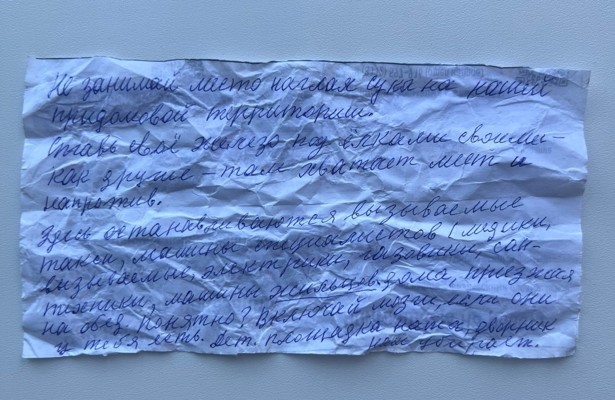 Не занимай место наглая сука на нашей
придомовой территории.
Ставь своё железо под ёлками своими –
как другие – там хватает мест и
напротив.
Здесь останавливаются вызываемые
такси, машины специалистов (медики,
вызываемые, электрики, газовики, сан-
техники, машины жильцов дома, приезжая
на обед. Понятно? Включай мозги, если они
у тебя есть. Дет. площадка наша, дворник
наш убирает.